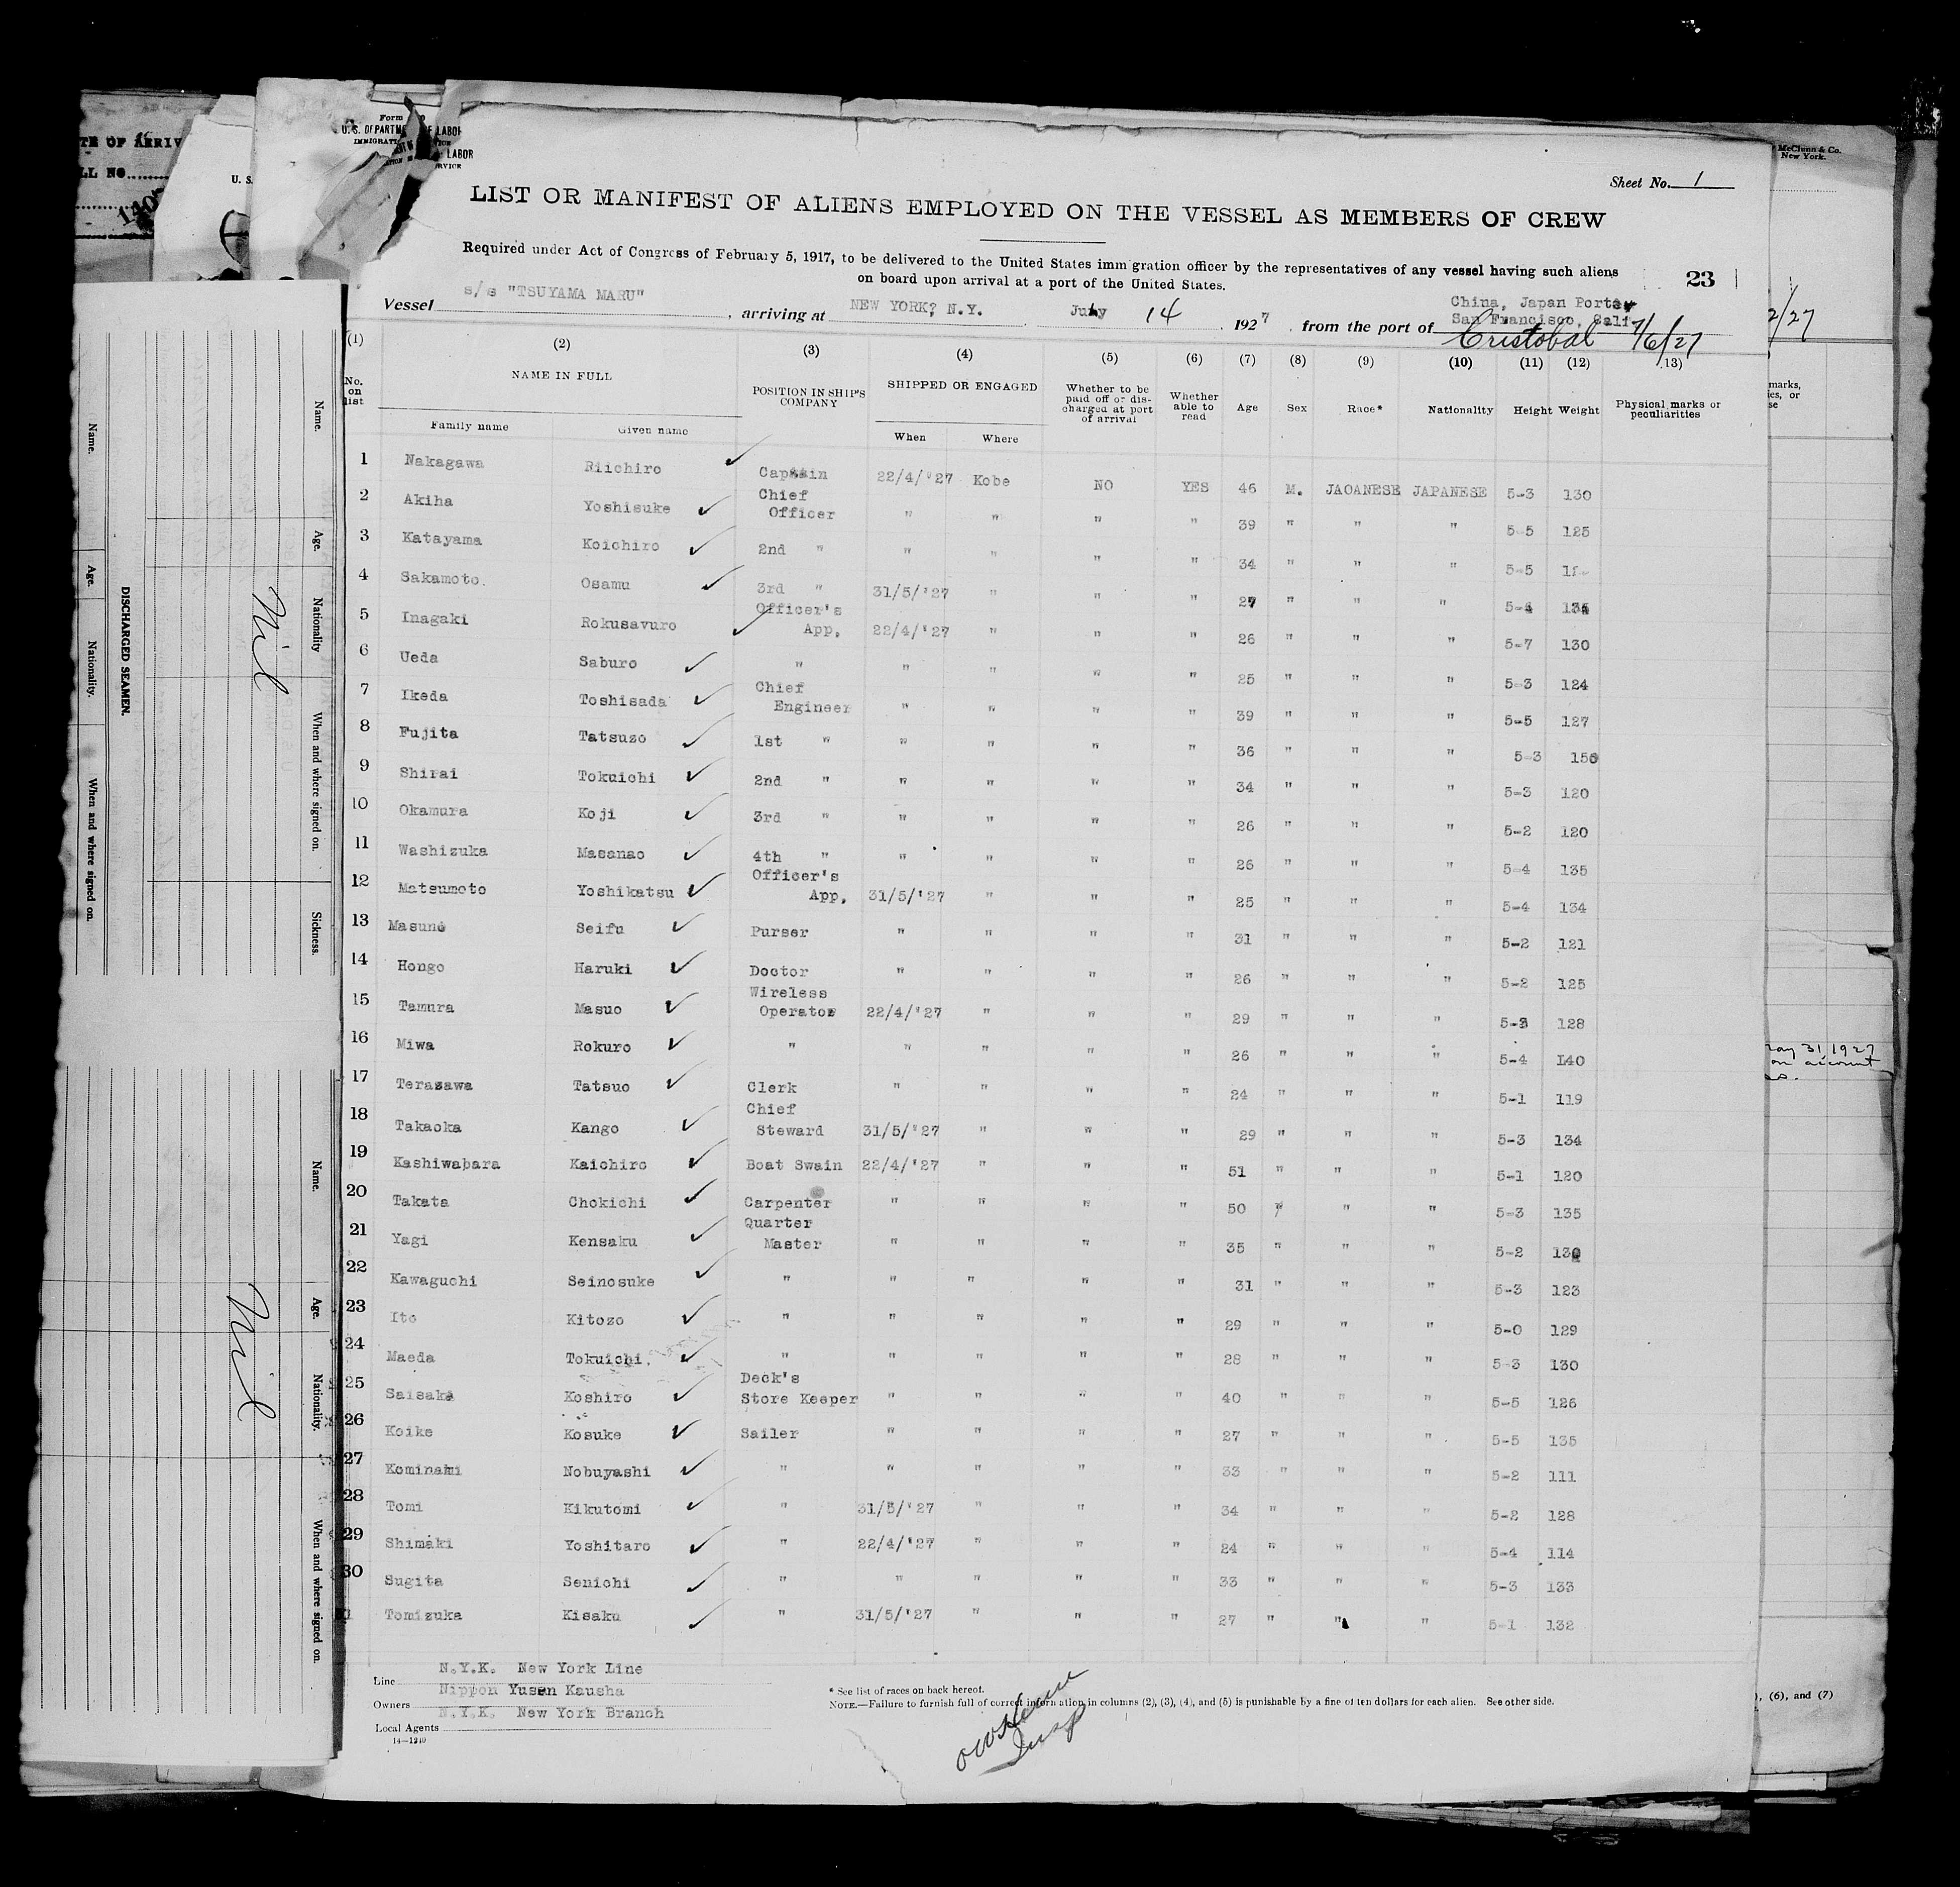 TE OF ARRIV
LL NO.
140
U. S.
Form
U. S. DEPARTM OF LABOR
IMMIGRATI
LABOR
RVICE
McClunn & Co.
New York.
Sheet No. 1
LIST OR MANIFEST OF ALIENS EMPLOYED ON THE VESSEL AS MEMBERS OF CREW
Required under Act of Congress of February 5, 1917, to be delivered to the United States immigration officer by the representatives of any vessel having such aliens
on board upon arrival at a port of the United States.
23
Vessel s/s "TSUYAMA MARU" , arriving at NEW YORK? N.Y. July 14 , 1927 , from the port of China, Japan Ports
San Francisco, Cali
Cristobal 7/6/27
2/27
(1) (2) (3) (4) (5) (6) (7) (8) (9) (10) (11) (12) (13)
No. on list NAME IN FULL POSITION IN SHIP'S COMPANY SHIPPED OR ENGAGED Whether to be paid off or discharged at port of arrival Whether able to read Age Sex Race* Nationality Height Weight Physical marks or peculiarities
Family name Given name When Where
1 Nakagawa Riichiro Captain 22/4/'27 Kobe NO YES 46 M. JAOANESE JAPANESE 5-3 130
2 Akiha Yoshisuke Chief Officer " " " " 39 " " " 5-5 125
3 Katayama Koichiro 2nd " " " " " 34 " " " 5-5
4 Sakamoto. Osamu 3rd " 31/5/'27 " " " 27 " " " 5-4 134
5 Inagaki Rokusavuro Officer's App. 22/4/'27 " " " 26 " " " 5-7 130
6 Ueda Saburo " " " " " 25 " " " 5-3 124
7 Ikeda Toshisada Chief Engineer " " " " 39 " " " 5-5 127
8 Fujita Tatsuzo 1st " " " " " 36 " " " 5-3 150
9 Shirai Tokuichi 2nd " " " " " 34 " " " 5-3 120
10 Okamura Koji 3rd " " " " " 26 " " " 5-2 120
11 Washizuka Masanao 4th " " " " " 26 " " " 5-4 135
12 Matsumoto Yoshikatsu Officer's App. 31/5/'27 " " " 25 " " " 5-4 134
13 Masuno Seifu Purser " " " " 31 " " " 5-2 121
14 Hongo Haruki Doctor " " " " 26 " " " 5-2 125
15 Tamura Masuo Wireless Operator 22/4/'27 " " " 29 " " " 128
16 Miwa Rokuro " " " " " 26 " " " 5-4 140
17 Terazawa Tatsuo Clerk " " " " 24 " " " 5-1 119
18 Takaoka Kango Chief Steward 31/5/'27 " " " 29 " " " 5-3 134
19 Kashiwabara Kaichiro Boat Swain 22/4/'27 " " " 51 " " " 5-1 120
20 Takata Chokichi Carpenter " " " " 50 " " " 5-3 135
21 Yagi Kensaku Quarter Master " " " " 35 " " " 5-2 130
22 Kawaguchi Seinosuke " " " " " 31 " " " 5-3 123
23 Ito Kitozo " " " " " 29 " " " 5-0 129
24 Maeda Tokuichi. " " " " " 28 " " " 5-3 130
25 Saisaka Koshiro Deck's Store Keeper " " " " 40 " " " 5-5 126
26 Koike Kosuke Sailer " " " " 27 " " " 5-5 135
27 Kominami Nobuyashi " " " " " 33 " " " 5-2 111
28 Tomi Kikutomi " 31/5/'27 " " " 34 " " " 5-2 128
29 Shimaki Yoshitaro " 22/4/'27 " " " 24 " " " 5-4 114
30 Sugita Senichi " " " " " 33 " " " 5-3 133
Tomizuka Kisaku " 31/5/'27 " " " 27 " " " 5-1 132
Line N.Y.K. New York Line
Owners Nippon Yusen Kausha
Local Agents N.Y.K. New York Branch
14—1240
* See list of races on back hereof.
NOTE.—Failure to furnish full of correct information in columns (2), (3), (4), and (5) is punishable by a fine of ten dollars for each alien. See other side.
Insp
DISCHARGED SEAMEN.
Name. Age. Nationality. When and where signed on.
Name. Age. Nationality When and where signed on. Sickness.
Nil
Name. Age. Nationality. When and where signed on.
Nil
marks,
ies, or
se
May 31, 1927
on account
, (6), and (7)